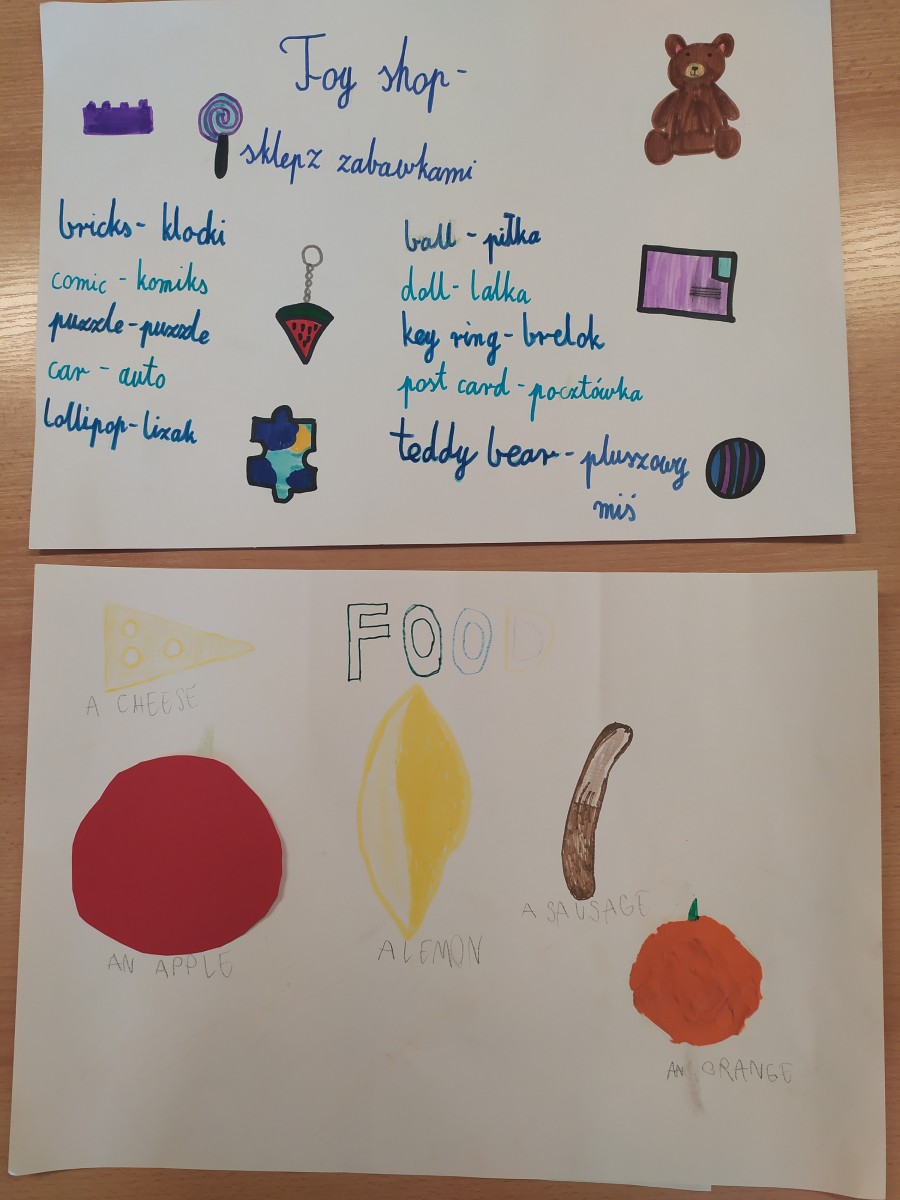 Toy shop -
sklep z zabawkami
bricks - klocki
comic - komiks
puzzle - puzzle
car - auto
lollipop - lizak
ball - piłka
doll - lalka
key ring - brelok
post card - pocztówka
teddy bear - pluszowy
miś
FOOD
A CHEESE
AN APPLE
A LEMON
A SAUSAGE
AN ORANGE